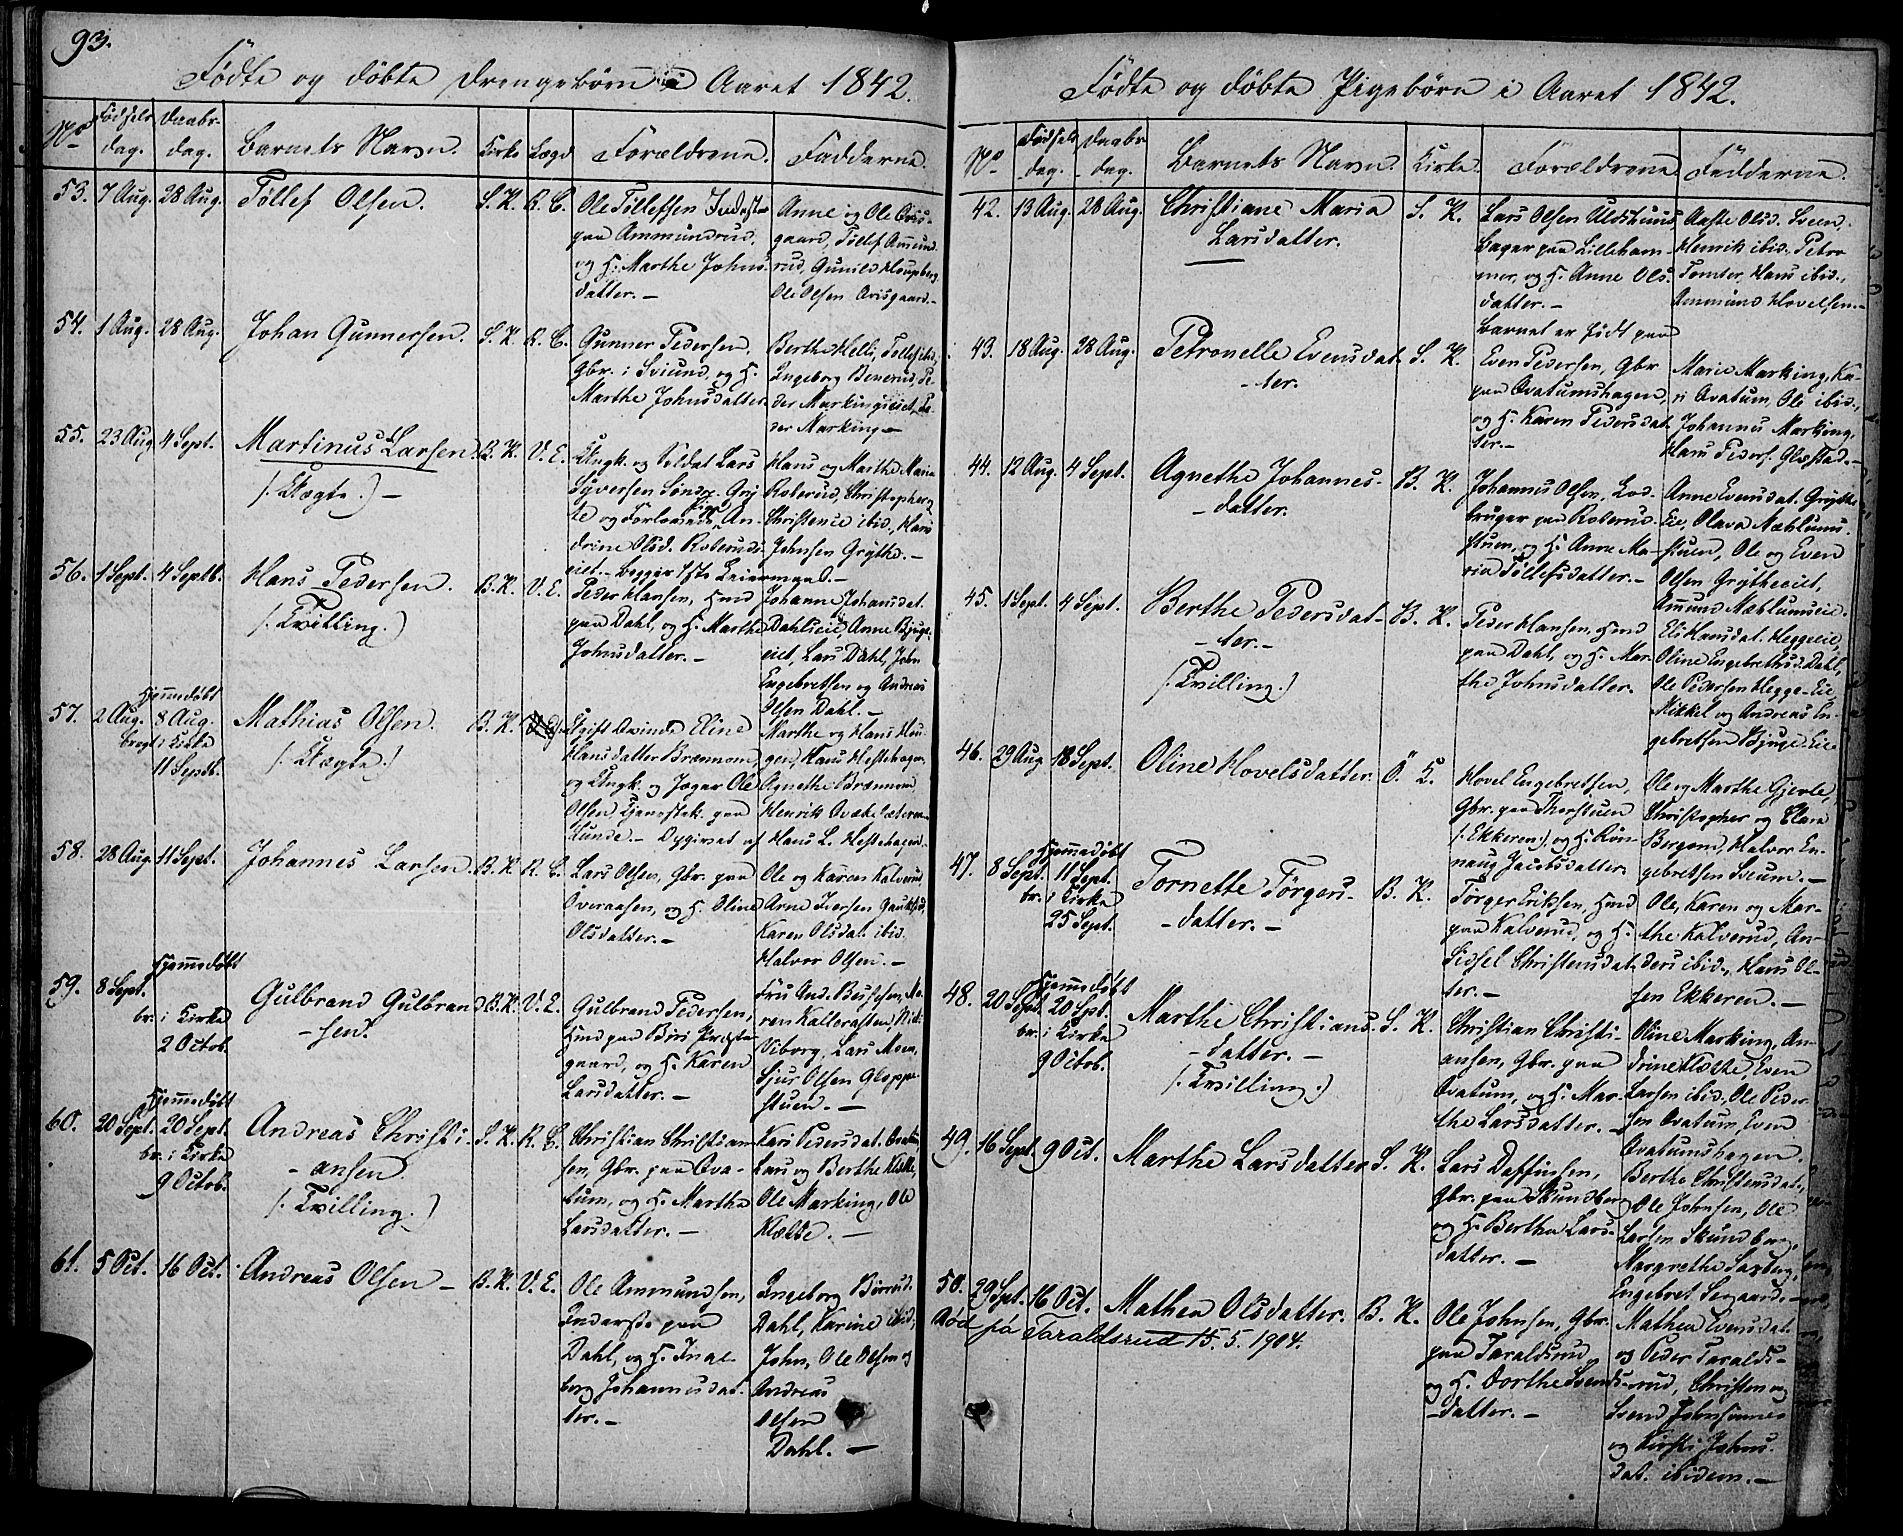 93.
Födte og döbte Drengebörn i Aaret 1842.
No Födsels dag. Daabs dag. Barnets Navn. Kirke Lægd Forældrene. Fadderne.
53. 7 Aug. 28 Aug. Töllef Olsen. S. K. R. C.
Ole Töllefsen Inderst
paa Ammundrud,
og H. Marthe Johns-
datter. –
Anne og Ole Ovis-
gaard, Töllef Ammund-
rud, Gunild
Ole Olsen Ovisgaard. –
54. 1 Aug. 28 Aug. Johan Gunnersen. S. K. R. C.
Gunner Pedersen,
Gbr. i Sveund, og H.
Marthe Johnsdatter.
Berthe Helli, Töllef ibid.,
Ingeborg Benerud, Pe-
der Markingseiet, Pe-
der Marking –
55. 23 Aug 4 Sept. Martinus Larsen. B. K. V. E.
(: Uægte.) –
Ungk. og Soldat Lars
Syversen Söndre Gry-
te og Forlovede Pige An-
drine Olsd. Roberuds-
eiet. – Begges 1ste Leiermaal. –
Hans og Marthe Maria
Roberud, Christopher og
Christense ibid., Hans
Johnsen Grythe. –
56. 1 Sept. 4 Septb. Hans Pedersen. B. K. V. E.
(: Tvilling.)
Peder Hansen, Hmd
paa Dahl, og H. Marthe
Johnsdatter. –
Johanne Johansdat.
Dahlseie, Anne Bjuge-
eiet, Lars Dahl, John
Engebretsen og Andreas
Olsen Dahl. –
57. 2 Aug. Hjemmedöbt 8 Aug. Mathias Olsen. B. K.
bragt i Kirke
11 Septb.
(: Uægte.)
Ugift Qvinde Eline
Hansdatter Brænnom,
og Ungk. og Jæger Ole
Olsen, Tjenestek. paa
Lunde. – Opgivet af Hans L. Heftehagen.
Marthe og Hans Hau-
gen, Hans Heftehagen,
Agnethe Brænnom,
Henrik
58. 28 Aug. 11 Sept. Johannes Larsen. B. K. R. C.
Lars Olsen, Gbr. paa
Överaasen, og H. Oline
Olsdatter. –
Ole og Karen Kalverud,
Arne Iversen Gaukstad,
Karen Olsdat. ibid.
Halvor Olsen. –
59. 8 Sept. Hjemmedöbt Gulbrand Gulbrand- B. K. V. E.
br. i Kirke
2 Octob.
-sen.
Gulbrand Pedersen,
Hmd paa Biri Præste-
gaard, og H. Karen
Larsdatter. –
Viborg, Lars Moen,
Sjur Olsen Gloppe-
stuen. –
60. 20 Sept. Hjemmedöbt 20 Sept. Andreas Christi- S. K. R. C.
br. i Kirke
9 Octob.
-ansen.
(: Tvilling.)
Christian Christian-
sen, Gbr. paa Ova-
tum, og H. Marthe
Larsdatter. –
Kari Pedersdat. Ovatum,
Lars og Berthe Klette,
Ole Marking, Ole
Klætte. –
61. 5 Oct. 16 Oct. Andreas Olsen – B. K. V. E.
Ole Ammundsen,
Inderste paa
Dahl, og H. Inge-
borg Johannesdat-
ter. –
Ingeborg Börrud-
Dahl, Karine ibid.,
John, Ole Olsen og
Andreas
Olsen
Dahl. –
Födte og döbte Pigebörn i Aaret 1842.
No Födsels dag. Daabs dag. Barnets Navn. Kirke. Forældrene Fadderne.
42. 13 Aug. 28 Aug. Christiane Maria S. K.
Larsdatter.
Lars Olsen
Bager paa Lilleham-
mer, og H. Anne Ols-
datter. –
Barnet er födt paa
Aaste Olsd. Sveen,
Henrik ibid., Petro
Tomter, Hans ibid.,
Ammund Hovelsen. –
43. 18 Aug. 28 Aug. Petronelle Evensdat- S. K.
-ter.
Even Pedersen, Gbr
paa Ovatumshagen,
og H. Karen Pedersdat-
ter. –
Marie Marking, Ka-
ri Ovatum, Ole ibid.,
Johannes Marking,
Hans Peders. Glæstad. –
44. 12 Aug. 4 Sept. Agnethe Johannes- B. K.
-datter.
Johannes Olsen, Lod-
bruger paa Roberud-
stuen, og H. Anne Ma-
ria Töllefsdatter. –
Anne Evensdat. Grythe-
Eie, Olava Mæhlums-
stuen, Ole og Even
Olsen Grytheeiet,
Amund Mæhlumseie.
45. 1 Sept. 4 Sept. Berthe Pedersdat- B. K.
-ter. –
(: Tvilling.)
Peder Hansen, Hmd
paa Dahl, og H. Mar-
the Johnsdatter.
Eli Hansdat. Heggeeie,
Oline Engebrethsd. Dahl,
Ole Pedersen Hegge-Eie,
Mikkel og Andreas En-
gebretsen Bjuge-Eie
46. 29 Aug 18 Sept. Oline Hovelsdatter. Ö. S.
Hovel Engebretsen,
Gbr. paa Thorstuen
(: Ekkeren), og H. Rön-
naug Jacobsdatter.
Ole og Marthe Gjevle,
Christopher og Clara
Bergom, Halvor En-
gebretsen Sveum. –
47. 8 Sept. Hjemmedöbt 11 Sept. Tornette Törgers- B. K.
br. i Kirke
25 Sept.
-datter. –
Törger Eriksen, Hmd
paa Kalverud, og H.
Sidsel Christensdat-
ter. –
Ole, Karen og Mar-
the Kalverud, An-
ders ibid., Hans Ol-
sen Ekkeren. –
48. 20 Sept. Hjemmedöbt 20 Spt. Marthe Christians- S. K.
br. i Kirke
9 Octob.
-datter. –
(: Tvilling.)
Christian Christi-
ansen, Gbr. paa
Ovatum, og H. Mar-
the Larsdatter. –
Oline Marking, An-
drine Klætte, Even
Larsen ibid., Ole Peder-
sen Ovatum, Even
Ovatumshagen.
49. 16 Sept 9 Oct. Marthe Larsdatter S. K.
Lars Daffinsen,
Gbr. paa Skundberg
og H. Berthe Lars-
datter. –
Berthe Christensdat.,
Ole Johnsen, Ole
Larsen Skundberg,
Margrethe Saxberg,
Engebret Segaard. –
50. 29 Spt. 16 Oct. Mathea Olsdatter. B. K.
Död på Taraldsrud 15.5.1904.
Ole Johnsen, Gbr.
paa Taraldsrud
og H. Dorthe Svends-
-datter. –
Mathea Evensdat.
og Peder Taralds-
-rud, Christen og
Svend Johnsonnes
og Kirsti Johns-
dat. ibidem. –